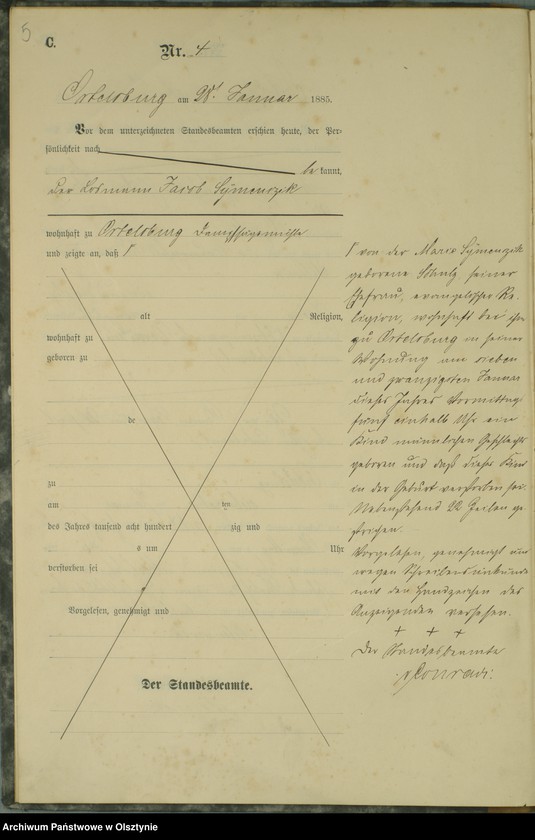 5
C.
Nr. 4
Ortelsburg am 28t Januar 1885.
Vor dem unterzeichneten Standesbeamten erschien heute, der Per-
sönlichkeit nach
be kannt,
der Losmann Jacob Symonczik
wohnhaft zu Ortelsburg Dampfsägemühle
und zeigte an, daß Γ
alt Religion,
wohnhaft zu
geboren zu
de
zu
am ten
des Jahres tausend acht hundert zig und
s um Uhr
verstorben sei
Vorgelesen, genehmigt und
Der Standesbeamte.
Γ von der Marie Symonczik
geborene Schulz seiner
Ehefrau, evangelischer Re-
ligion, wohnhaft bei ihm
zu Ortelsburg in seiner
Wohnung am sieben
und zwanzigsten Januar
dieses Jahres Vormittags
fünf einhalb Uhr ein
Kind männlichen Geschlechts
geboren und daß dieses Kind
in der Geburt verstorben sei.
Nebenstehend 22 Zeilen ge-
strichen.
Vorgelesen, genehmigt und
wegen Schreibensunkunde
mit den Handzeichen des
Anzeigenden versehen.
+ + +
Der Standesbeamte
Conradi.
Archiwum Państwowe w Olsztynie